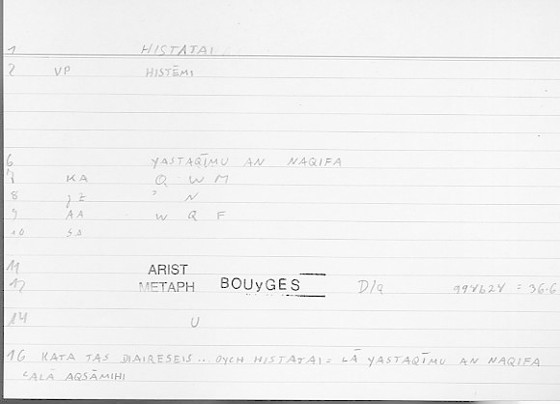 1 HISTATAI
2 VP HISTĒMI
6 YASTAQĪMU AN NAQIFA
7 KA Q W M
8 jz ʾ N
9 AA W Q F
10 SA
11 ARIST
12 METAPH BOUyGES D/q 994b24 = 36.6
14 U
16 KATA TAS DIAIRESEIS .. OYCH HISTATAI = LĀ YASTAQĪMU AN NAQIFA
ʿALĀ AQSĀMIHI